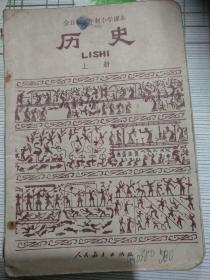 全日制十年制小学课本
历史
LISHI
上册
人民教育出版社